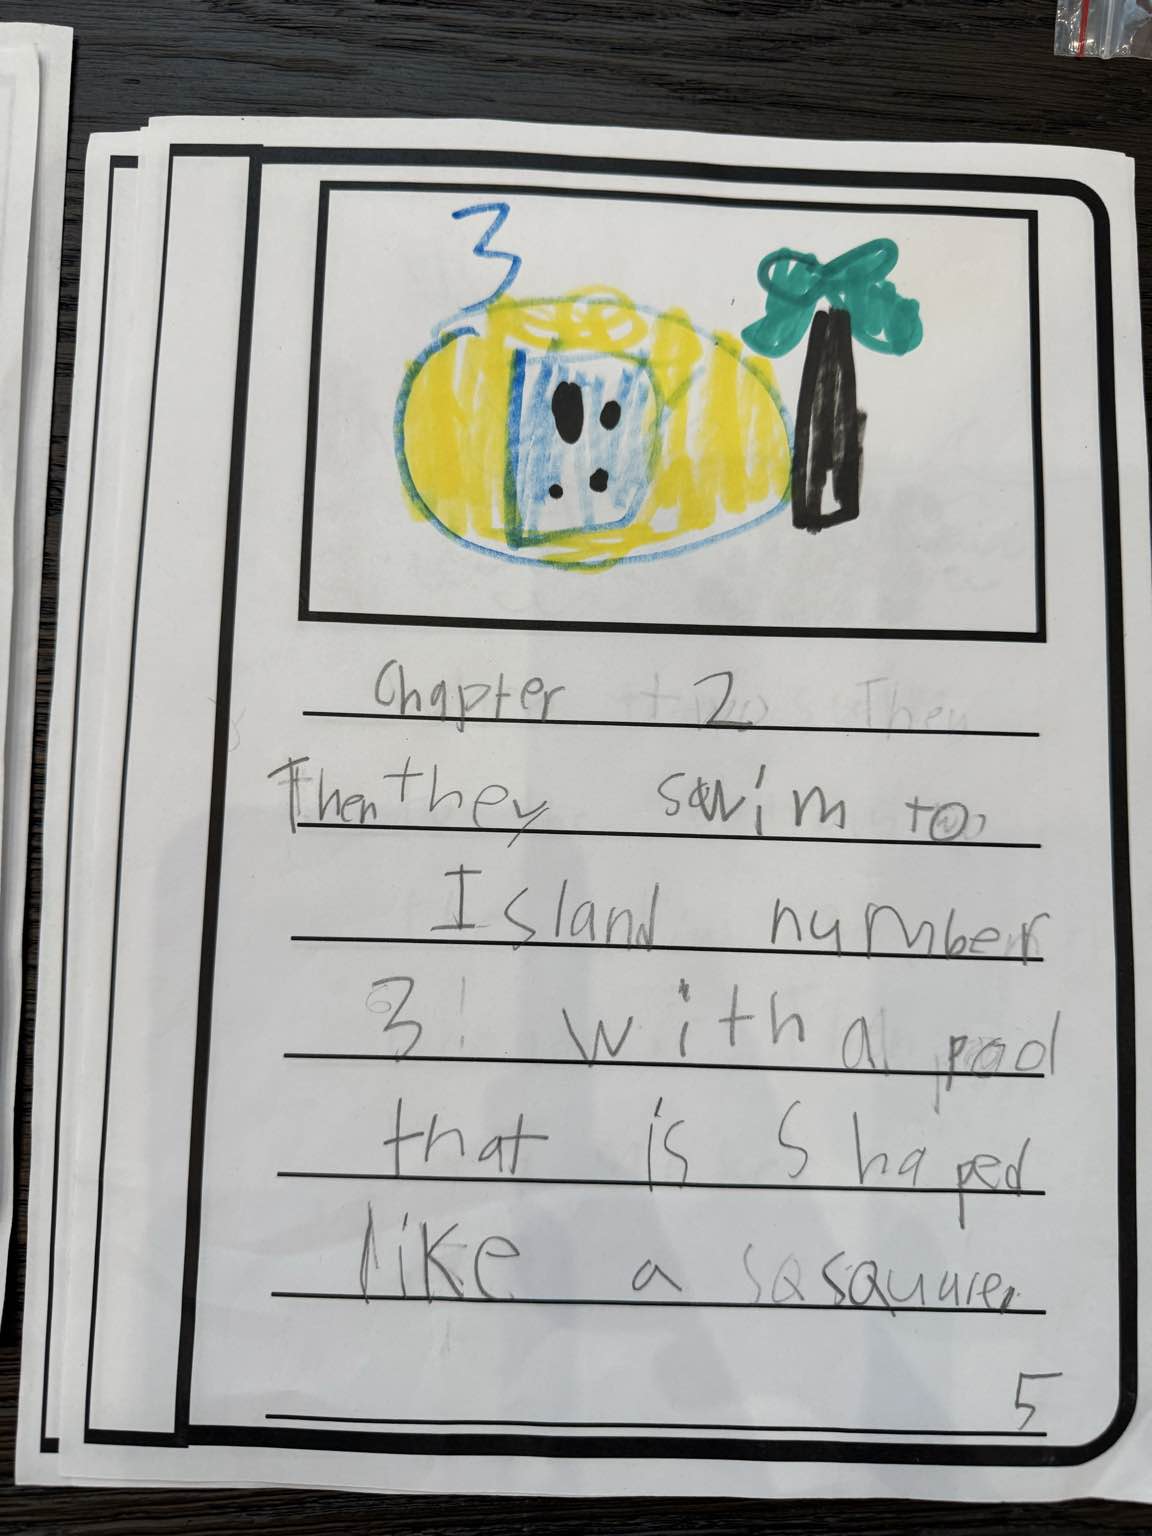 3
Chapter 2
Then they swim to
Island number
3! with a pool
that is shaped
like a squuare.
5